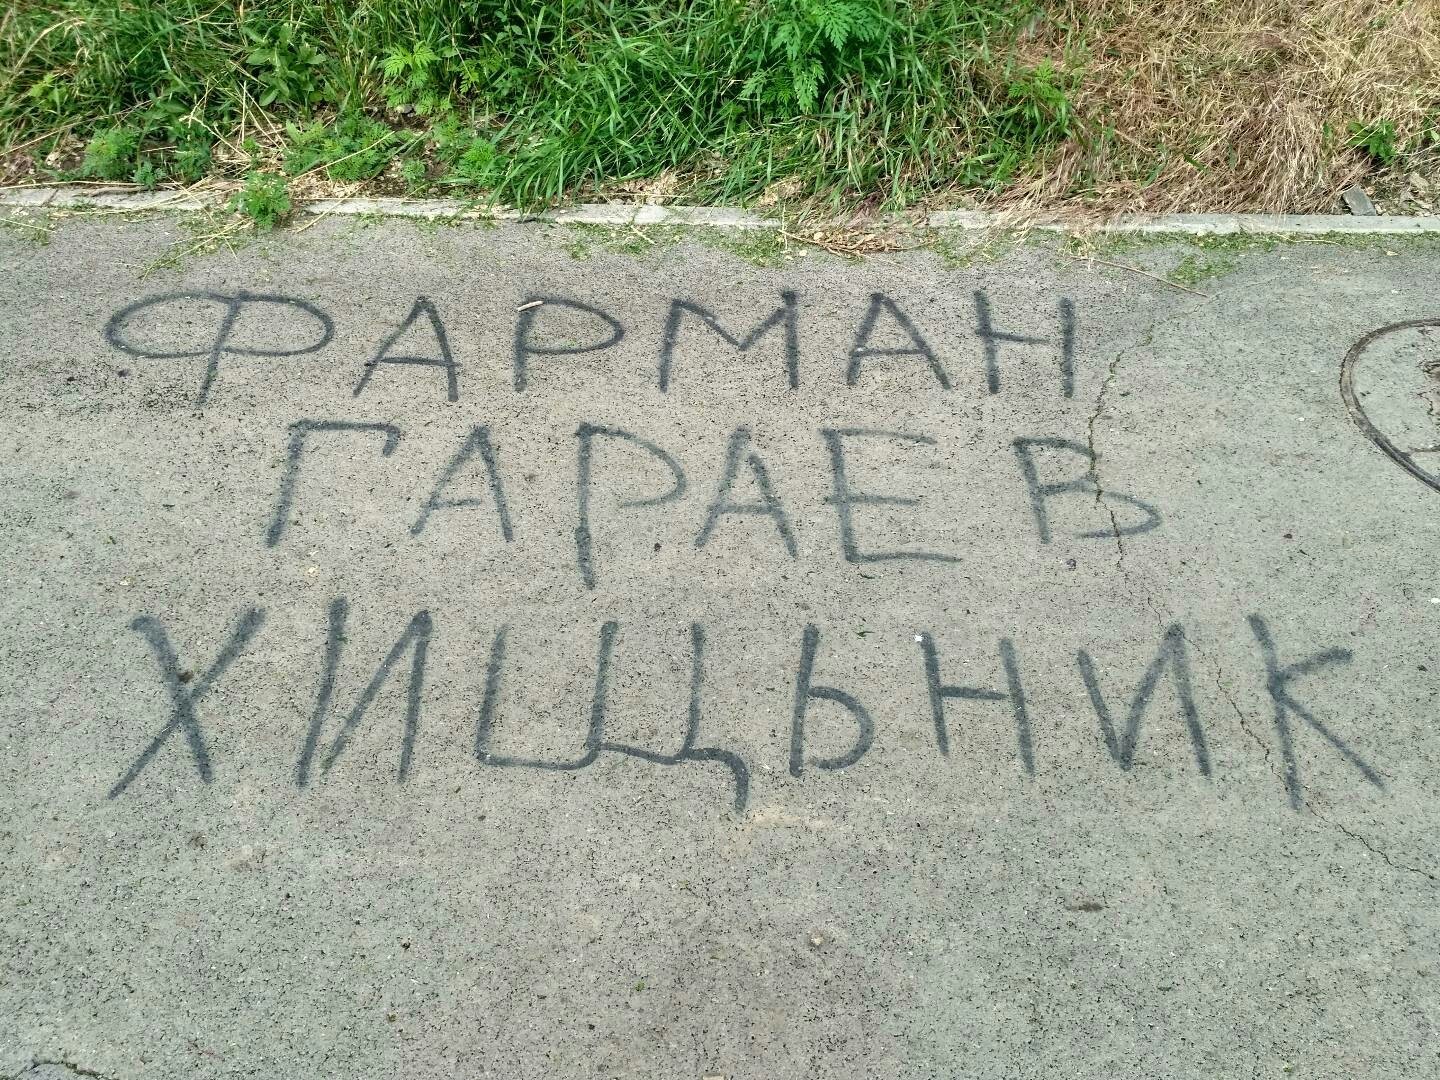 ФАРМАН
ГАРАЕВ
ХИЩЬНИК